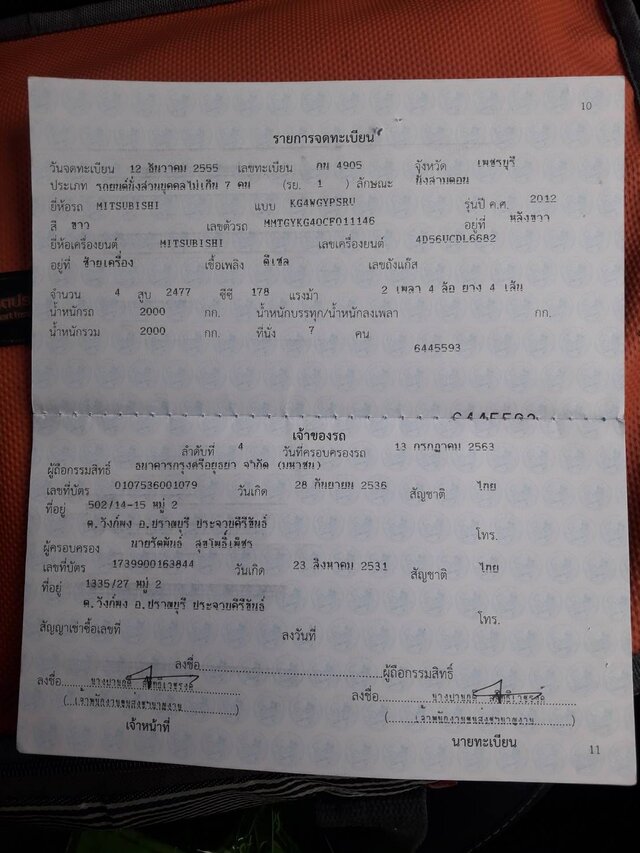 10
รายการจดทะเบียน
วันจดทะเบียน 12 ธันวาคม 2555 เลขทะเบียน กน 4905 จังหวัด เพชรบุรี
ประเภท รถยนต์นั่งส่วนบุคคลไม่เกิน 7 คน (รย. 1 ) ลักษณะ นั่งสามตอน
ยี่ห้อรถ MITSUBISHI แบบ KG4WGYPSRU รุ่นปี ค.ศ. 2012
สี ขาว เลขตัวรถ MMTGYKG40CF011146 อยู่ที่ หลังขวา
ยี่ห้อเครื่องยนต์ MITSUBISHI เลขเครื่องยนต์ 4D56UCDL6682
อยู่ที่ ซ้ายเครื่อง เชื้อเพลิง ดีเซล เลขถังแก๊ส
จำนวน 4 สูบ 2477 ซีซี 178 แรงม้า 2 เพลา 4 ล้อ ยาง 4 เส้น
น้ำหนักรถ 2000 กก. น้ำหนักบรรทุก/น้ำหนักลงเพลา กก.
น้ำหนักรวม 2000 กก. ที่นั่ง 7 คน
6445593
6445593
เจ้าของรถ
ลำดับที่ 4 วันที่ครอบครองรถ 13 กรกฎาคม 2563
ผู้ถือกรรมสิทธิ์ ธนาคารกรุงศรีอยุธยา จำกัด (มหาชน)
เลขที่บัตร 0107536001079 วันเกิด 28 กันยายน 2536 สัญชาติ ไทย
ที่อยู่ 502/14-15 หมู่ 2
ต.วังก์พง อ.ปราณบุรี ประจวบคีรีขันธ์ โทร.
ผู้ครอบครอง นายรัตพันธ์ สุขโพธิ์เพ็ชร
เลขที่บัตร 1739900163844 วันเกิด 23 สิงหาคม 2531 สัญชาติ ไทย
ที่อยู่ 1335/27 หมู่ 2
ต.วังก์พง อ.ปราณบุรี ประจวบคีรีขันธ์ โทร.
สัญญาเช่าซื้อเลขที่ ลงวันที่
ลงชื่อ ผู้ถือกรรมสิทธิ์
ลงชื่อ ลงชื่อ
(เจ้าพนักงานขนส่งชำนาญงาน) (เจ้าพนักงานขนส่งชำนาญงาน)
เจ้าหน้าที่ นายทะเบียน
11